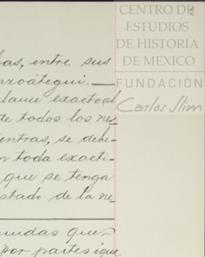 CENTRO DE
ESTUDIOS
DE HISTORIA
DE MEXICO
FUNDACIÓN
Carlos Slim
as, entre sus
azoátegui.
lance exacto
de todos los ne
entras, se debe
n toda exacti-
que se tenga
stado de la ne
uidas que
por partes igua